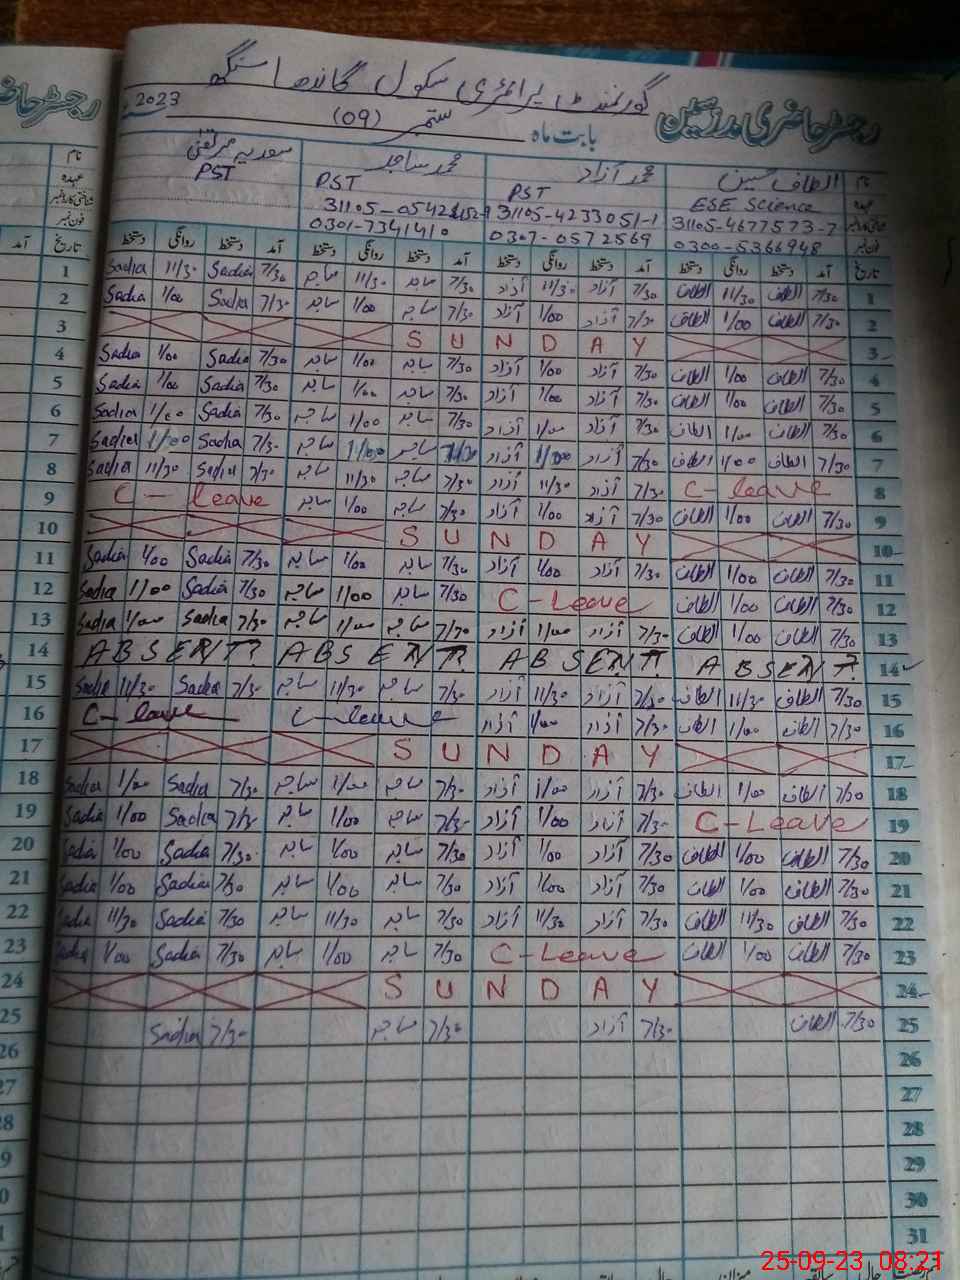 گورنمنٹ پرائمری سکول گاندھا سنگھ
رجسٹر حاضری مدرسین بابت ماہ ستمبر (09) 2023
نام الطاف حسین محمد آزاد محمد ساجد سعدیہ مرتضیٰ
عہدہ ESE Science PST PST PST
31105-4677573-7 31105-4233051-1
فون نمبر 0300-5366948 0307-0572569 0301-7341410
تاریخ آمد دستخط روانگی دستخط آمد دستخط روانگی دستخط آمد دستخط روانگی دستخط آمد دستخط روانگی دستخط تاریخ
1 7/30 الطاف 11/30 الطاف 7/30 آزاد 11/30 آزاد 7/30 ساجد 11/30 ساجد 7/30 Sadia 11/30 Sadia 1
2 7/30 الطاف 1/00 الطاف 7/30 آزاد 1/00 آزاد 7/30 ساجد 1/00 ساجد 7/30 Sadia 1/00 Sadia 2
3 SUNDAY 3
4 7/30 الطاف 1/00 الطاف 7/30 آزاد 1/00 آزاد 7/30 ساجد 1/00 ساجد 7/30 Sadia 1/00 Sadia 4
5 7/30 الطاف 1/00 الطاف 7/30 آزاد 1/00 آزاد 7/30 ساجد 1/00 ساجد 7/30 Sadia 1/00 Sadia 5
6 7/30 الطاف 1/00 الطاف 7/30 آزاد 1/00 آزاد 7/30 ساجد 1/00 ساجد 7/30 Sadia 1/00 Sadia 6
7 7/30 الطاف 1/00 الطاف 7/30 آزاد 1/00 آزاد 7/30 ساجد 1/00 ساجد 7/30 Sadia 1/00 Sadia 7
8 C-leave 7/30 آزاد 11/30 آزاد 7/30 ساجد 11/30 ساجد 7/30 Sadia 11/30 Sadia 8
9 7/30 الطاف 1/00 الطاف 7/30 آزاد 1/00 آزاد 7/30 ساجد 1/00 ساجد C-leave 9
10 SUNDAY 10
11 7/30 الطاف 1/00 الطاف 7/30 آزاد 1/00 آزاد 7/30 ساجد 1/00 ساجد 7/30 Sadia 1/00 Sadia 11
12 7/30 الطاف 1/00 الطاف C-Leave 7/30 ساجد 1/00 ساجد 7/30 Sadia 1/00 Sadia 12
13 7/30 الطاف 1/00 الطاف 7/30 آزاد 1/00 آزاد 7/30 ساجد 1/00 ساجد 7/30 Sadia 1/00 Sadia 13
14 ABSENT ABSENT ABSENT ABSENT 14
15 7/30 الطاف 11/30 الطاف 7/30 آزاد 11/30 آزاد 7/30 ساجد 11/30 ساجد 7/30 Sadia 11/30 Sadia 15
16 7/30 الطاف 1/00 الطاف 7/30 آزاد 1/00 آزاد C-leave C-leave 16
17 SUNDAY 17
18 7/30 الطاف 1/00 الطاف 7/30 آزاد 1/00 آزاد 7/30 ساجد 1/00 ساجد 7/30 Sadia 1/00 Sadia 18
19 C-Leave 7/30 آزاد 1/00 آزاد 7/30 ساجد 1/00 ساجد 7/30 Sadia 1/00 Sadia 19
20 7/30 الطاف 1/00 الطاف 7/30 آزاد 1/00 آزاد 7/30 ساجد 1/00 ساجد 7/30 Sadia 1/00 Sadia 20
21 7/30 الطاف 1/00 الطاف 7/30 آزاد 1/00 آزاد 7/30 ساجد 1/00 ساجد 7/30 Sadia 1/00 Sadia 21
22 7/30 الطاف 11/30 الطاف 7/30 آزاد 11/30 آزاد 7/30 ساجد 11/30 ساجد 7/30 Sadia 11/30 Sadia 22
23 7/30 الطاف 1/00 الطاف C-Leave 7/30 ساجد 1/00 ساجد 7/30 Sadia 1/00 Sadia 23
24 SUNDAY 24
25 7/30 الطاف 7/30 آزاد 7/30 ساجد 7/30 Sadia 25
26
27
28
29
30
31
25-09-23 08:21